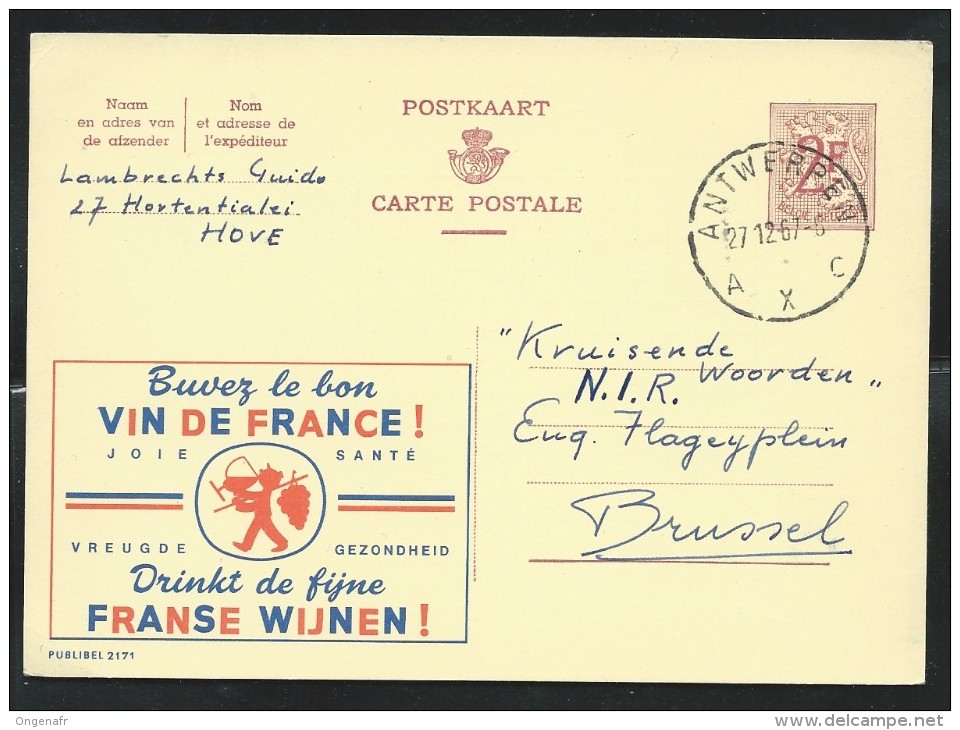 Naam
en adres van
de afzender
Nom
et adresse de
l'expéditeur
POSTKAART
CARTE POSTALE
2F
BELGIE-BELGIQUE
ANTWERPEN
27 12 67-6
A X C
Lambrechts Guido
27 Hortentialei
HOVE
"Kruisende
Woorden"
N.I.R.
Eug. Flageyplein
Brussel
Buvez le bon
VIN DE FRANCE!
JOIE SANTÉ
VREUGDE GEZONDHEID
Drinkt de fijne
FRANSE WIJNEN!
PUBLIBEL 2171
Ongenafr
www.delcampe.net